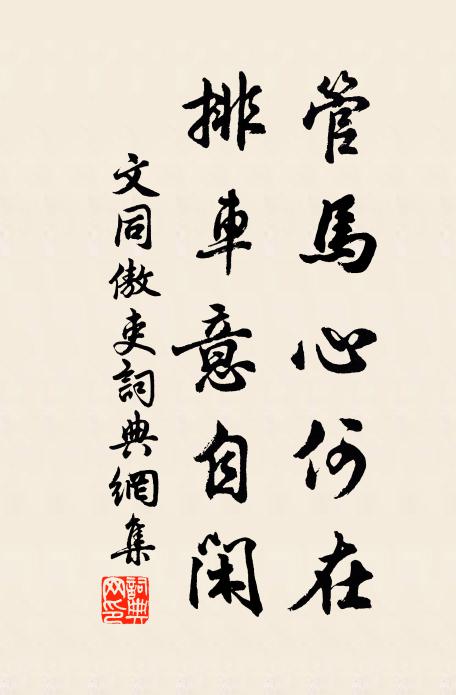 管馬心何在
排車意自閑
文同傲吏詞典網集
詞典
网印